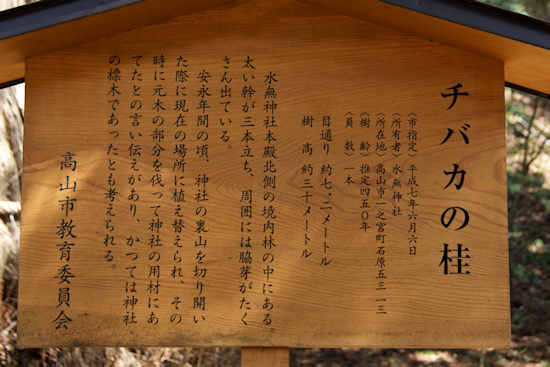 チバカの桂
〈市指定〉平成七年六月六日
〈所有者〉水無神社
〈所在地〉高山市一之宮町石原五三一三
〈樹　齢〉推定四五〇年
〈員　数〉一本
目通り　約七・二メートル
樹　高　約三十メートル
水無神社本殿北側の境内林の中にある。
太い幹が三本立ち、周囲には脇芽がたく
さん出ている。
安永年間の頃、神社の裏山を切り開い
た際に現在の場所に植え替えられ、その
時に元木の部分を伐って神社の用材にあ
てたとの言い伝えがあり、かつては神社
の標木であったとも考えられる。
高山市教育委員会